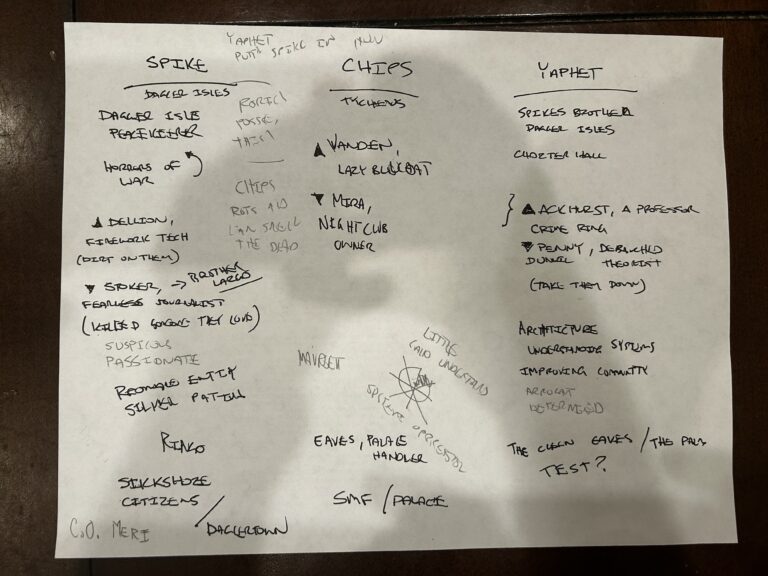 YAPHET
PUTS SPIKE IN
SPIKE
DAGGER ISLES
DAGGER ISLE
PEACEKEEPER
HORRORS OF
WAR
▲ DELLION,
FIREWORK TECH
(DIRT ON THEM)
▼ STOKER, → BROTHER
FEARLESS JOURNALIST
(KILLED SOMEONE THEY LOVED)
SUSPICIOUS
PASSIONATE
SILVER
RINGO
SILKSHORE
CITIZENS
/ DAGGERTOWN
C.O. MERI
POSSE,
CHIPS
CAN SMELL
THE DEAD
CHIPS
TYCHEROS
▲ VANDEN,
LAZY BLUECOAT
▼ MIRA,
NIGHTCLUB
OWNER
LITTLE
EAVES, PALACE
HANDLER
SMF / PALACE
YAPHET
SPIKES BROTHER
DAGGER ISLES
CHARTER HALL
▲ ACKHURST, A PROFESSOR
CRIME RING
▼ PENNY, DEBAUCHED
THEORIST
(TAKE THEM DOWN)
ARCHITICTURE
UNDERSTANDING SYSTEMS
IMPROVING COMMUNITY
ARROGANT
DETERMINED
THE EAVES / THE
TEST?